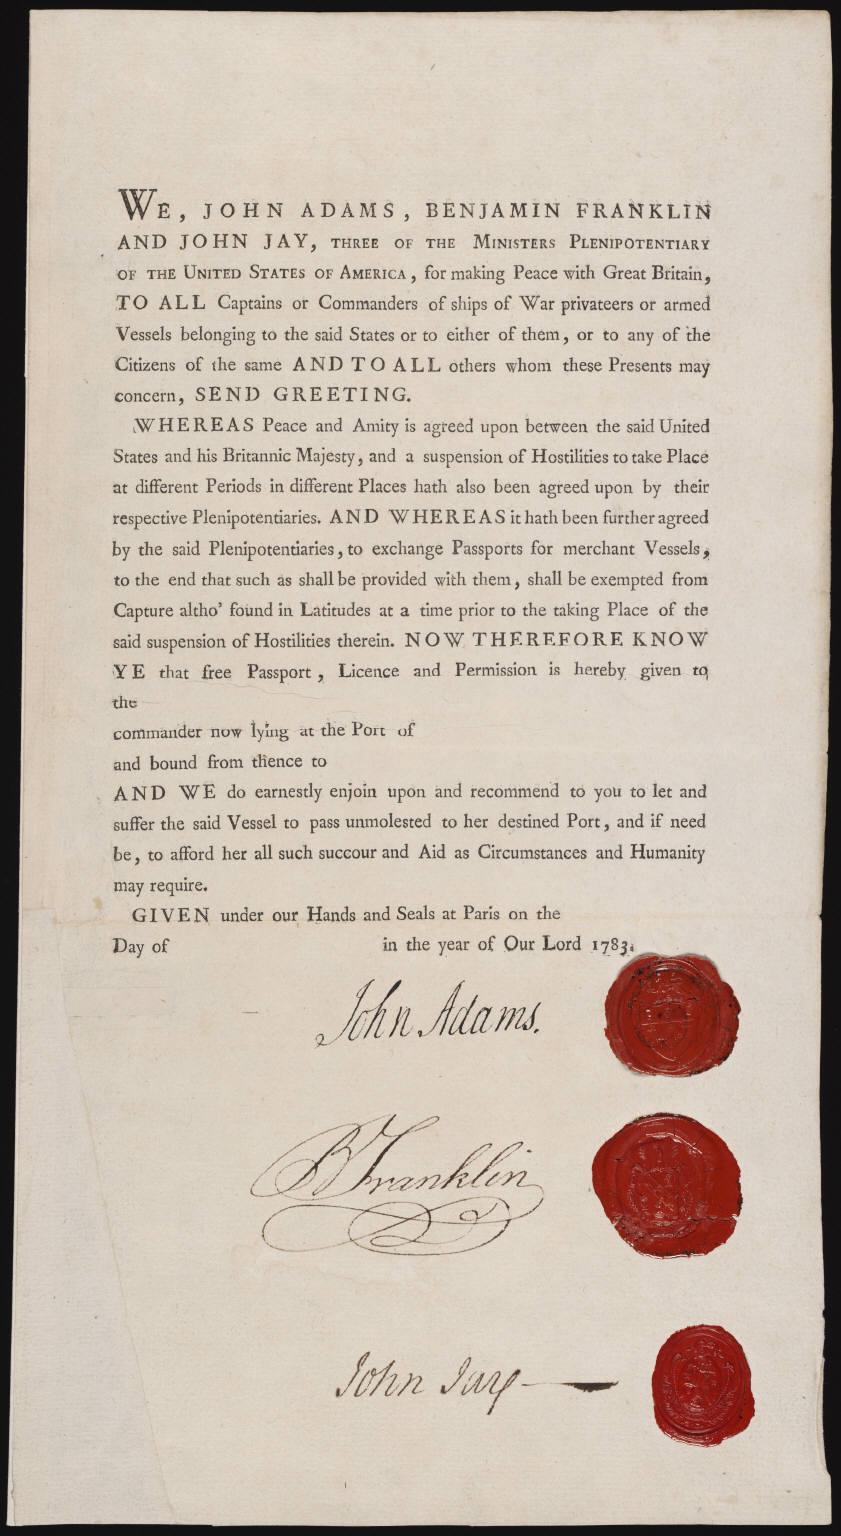 WE, JOHN ADAMS, BENJAMIN FRANKLIN
AND JOHN JAY, THREE OF THE MINISTERS PLENIPOTENTIARY
OF THE UNITED STATES OF AMERICA, for making Peace with Great Britain,
TO ALL Captains or Commanders of ships of War privateers or armed
Vessels belonging to the said States or to either of them, or to any of the
Citizens of the same AND TO ALL others whom these Presents may
concern, SEND GREETING.
WHEREAS Peace and Amity is agreed upon between the said United
States and his Britannic Majesty, and a suspension of Hostilities to take Place
at different Periods in different Places hath also been agreed upon by their
respective Plenipotentiaries. AND WHEREAS it hath been further agreed
by the said Plenipotentiaries, to exchange Passports for merchant Vessels,
to the end that such as shall be provided with them, shall be exempted from
Capture altho' found in Latitudes at a time prior to the taking Place of the
said suspension of Hostilities therein. NOW THEREFORE KNOW
YE that free Passport, Licence and Permission is hereby given to
the
commander now lying at the Port of
and bound from thence to
AND WE do earnestly enjoin upon and recommend to you to let and
suffer the said Vessel to pass unmolested to her destined Port, and if need
be, to afford her all such succour and Aid as Circumstances and Humanity
may require.
GIVEN under our Hands and Seals at Paris on the
Day of in the year of Our Lord 1783.
John Adams.
B Franklin
John Jay